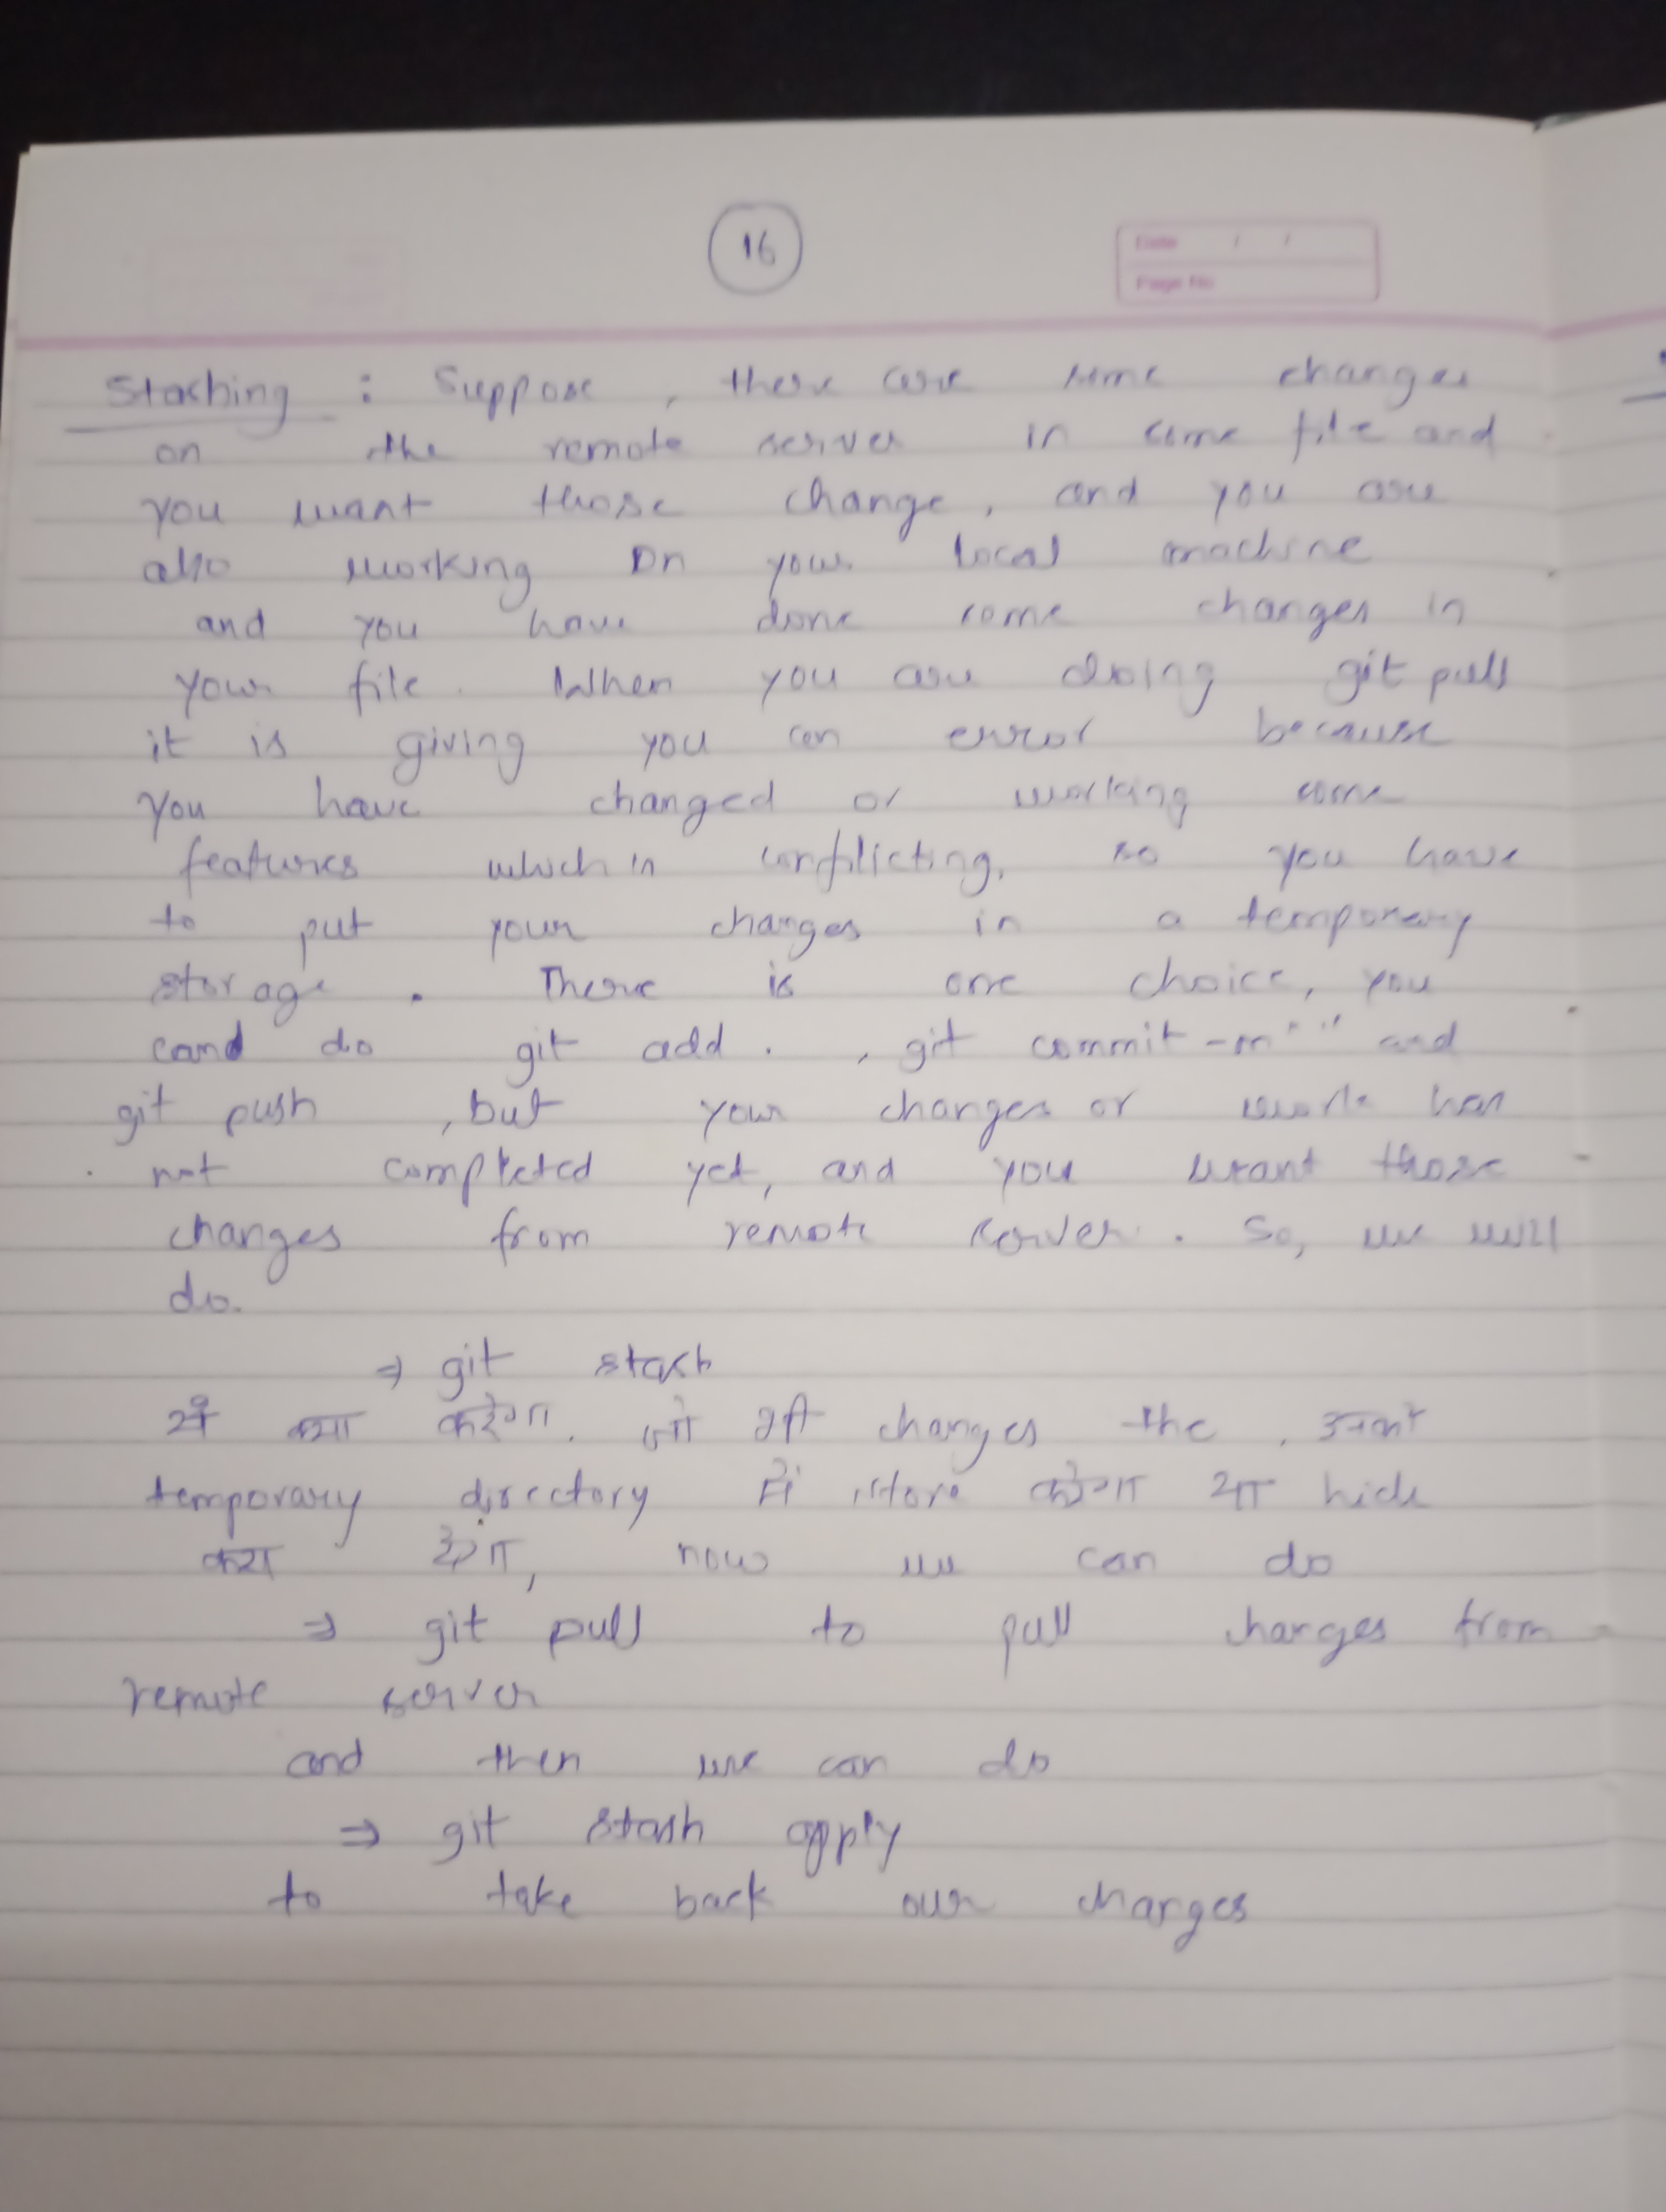 16
Date / /
Page No
Stashing : Suppose , there are some changes
on the remote server in some file and
you want those change , and you are
also working on your local machine
and you have done some changes in
your file . When you are doing git pull
it is giving you an error because
you have changed or working some
features which is conflicting, so you have
to put your changes in a temporary
storage . There is one choice, you
cand do git add . , git commit -m" " and
git push , but your changes or work has
not completed yet, and you want those
changes from remote server . So, we will
do.
⇒ git stash
ये क्या करेगा . जो भी changes the , उनको
temporary directory में store करेगा या hide
करा देगा, now we can do
⇒ git pull to pull changes from
remote server
and then we can do
⇒ git stash apply
to take back our changes